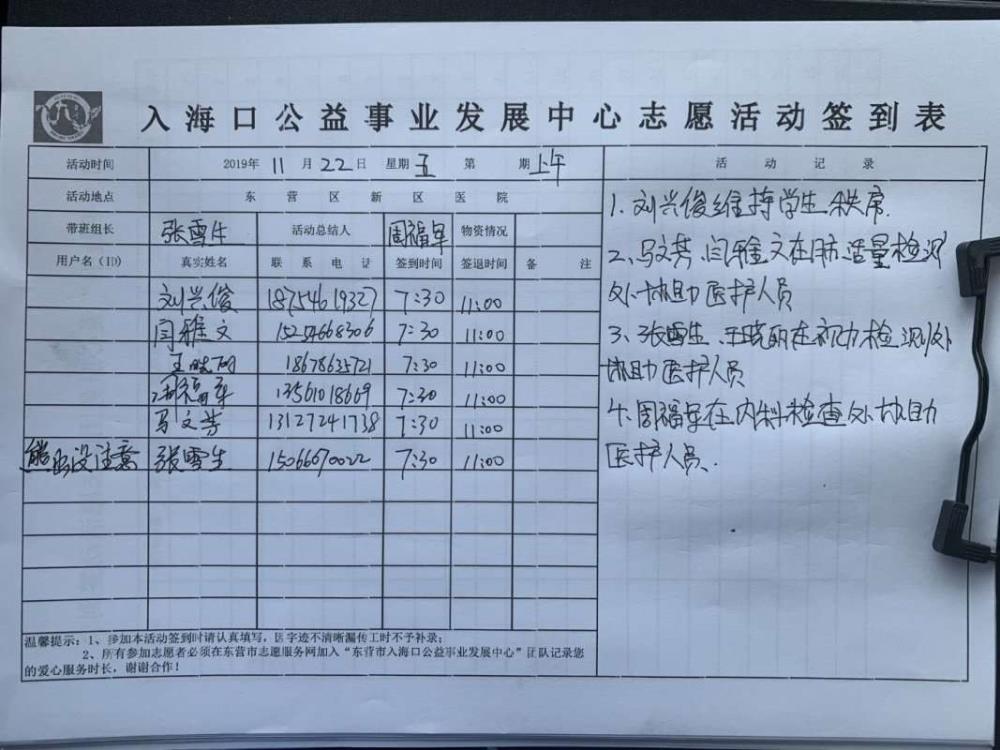 入海口公益事业发展中心志愿活动签到表
活动时间 2019年 11 月 22 日 星期 五 第 期 上午
活动地点 东营区新区医院
带班组长 张雪生 活动总结人 周福军 物资情况
用户名（ID） 真实姓名 联系电话 签到时间 签退时间 备注
刘兴俊 18754619327 7:30 11:00
闫雅文 15254668306 7:30 11:00
王晓丽 18678635721 7:30 11:00
周福军 13561018669 7:30 11:00
马文芳 13127241738 7:30 11:00
熊出没注意 张雪生 15066070022 7:30 11:00
温馨提示：1、参加本活动签到时请认真填写，因字迹不清晰漏传工时不予补录；
2、所有参加志愿者必须在东营市志愿服务网加入“东营市入海口公益事业发展中心”团队记录您
的爱心服务时长，谢谢合作！
活动记录
1.刘兴俊维持学生秩序.
2、马文芳、闫雅文在肺活量检测
处协助医护人员
3、张雪生、王晓丽在视力检测处
协助医护人员
4、周福军在内科检查处协助
医护人员.